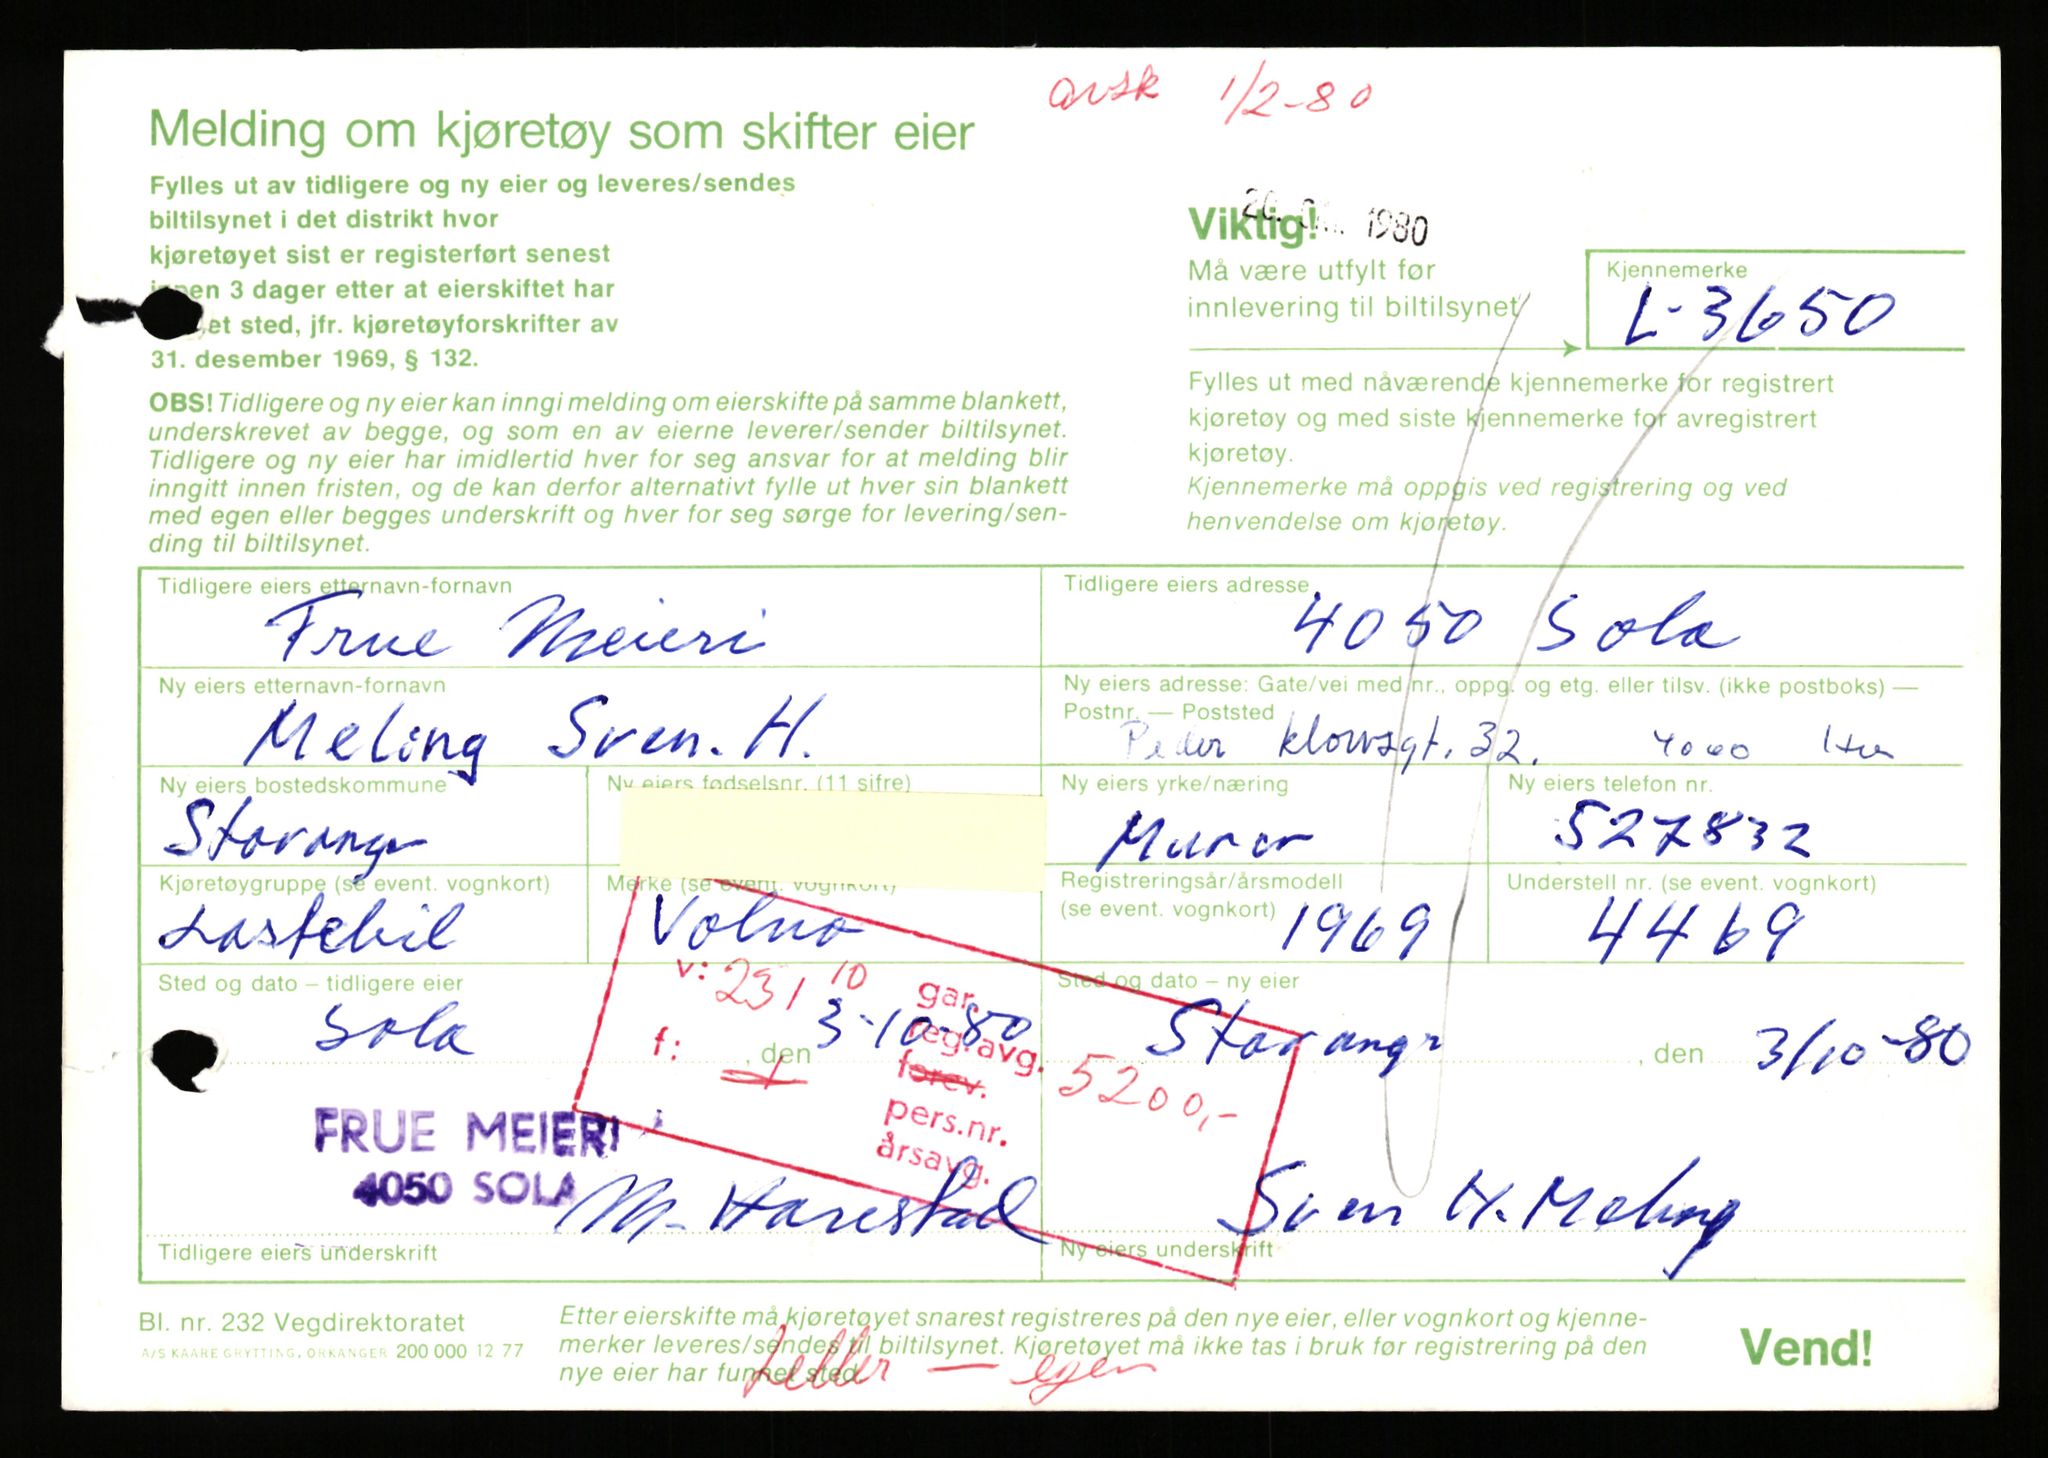 avsk 1/2-80
Melding om kjøretøy som skifter eier
Fylles ut av tidligere og ny eier og leveres/sendes
biltilsynet i det distrikt hvor
kjøretøyet sist er registerført senest
3 dager etter at eierskiftet har
sted, jfr. kjøretøyforskrifter av
31. desember 1969, § 132.
OBS! Tidligere og ny eier kan inngi melding om eierskifte på samme blankett,
underskrevet av begge, og som en av eierne leverer/sender biltilsynet.
Tidligere og ny eier har imidlertid hver for seg ansvar for at melding blir
inngitt innen fristen, og de kan derfor alternativt fylle ut hver sin blankett
med egen eller begges underskrift og hver for seg sørge for levering/sen-
ding til biltilsynet.
1980
Viktig!
Må være utfylt før
innlevering til biltilsynet
Kjennemerke
L-3650
Fylles ut med nåværende kjennemerke for registrert
kjøretøy og med siste kjennemerke for avregistrert
kjøretøy.
Kjennemerke må oppgis ved registrering og ved
henvendelse om kjøretøy.
Tidligere eiers etternavn-fornavn
Frue Meieri
Tidligere eiers adresse
4050 Sola
Ny eiers etternavn-fornavn
Meling Sven. H.
Ny eiers adresse: Gate/vei med nr., oppg. og etg. eller tilsv. (ikke postboks) —
Postnr. — Poststed
Peder Klowsgt. 32. 4000
Ny eiers bostedskommune
Stavanger
Ny eiers fødselsnr. (11 sifre)
Ny eiers yrke/næring
Murer
Ny eiers telefon nr.
527832
Kjøretøygruppe (se event. vognkort)
Lastebil
Merke (se event. vognkort)
Volvo
Registreringsår/årsmodell
(se event. vognkort)
1969
Understell nr. (se event. vognkort)
4469
Sted og dato – tidligere eier
Sola , den 3-10-80
Sted og dato – ny eier
Stavanger , den 3/10-80
v: 23/10
f:
gar.
reg.avg. 5200,-
forev.
pers.nr.
årsavg.
FRUE MEIERI
4050 SOLA
M. Harestad
Sven H. Meling
Tidligere eiers underskrift
Ny eiers underskrift
Bl. nr. 232 Vegdirektoratet
A/S KAARE GRYTTING, ORKANGER 200 000 12 77
Etter eierskifte må kjøretøyet snarest registreres på den nye eier, eller vognkort og kjenne-
merker leveres/sendes til biltilsynet. Kjøretøyet må ikke tas i bruk før registrering på den
nye eier har funnet sted.
— egen
Vend!